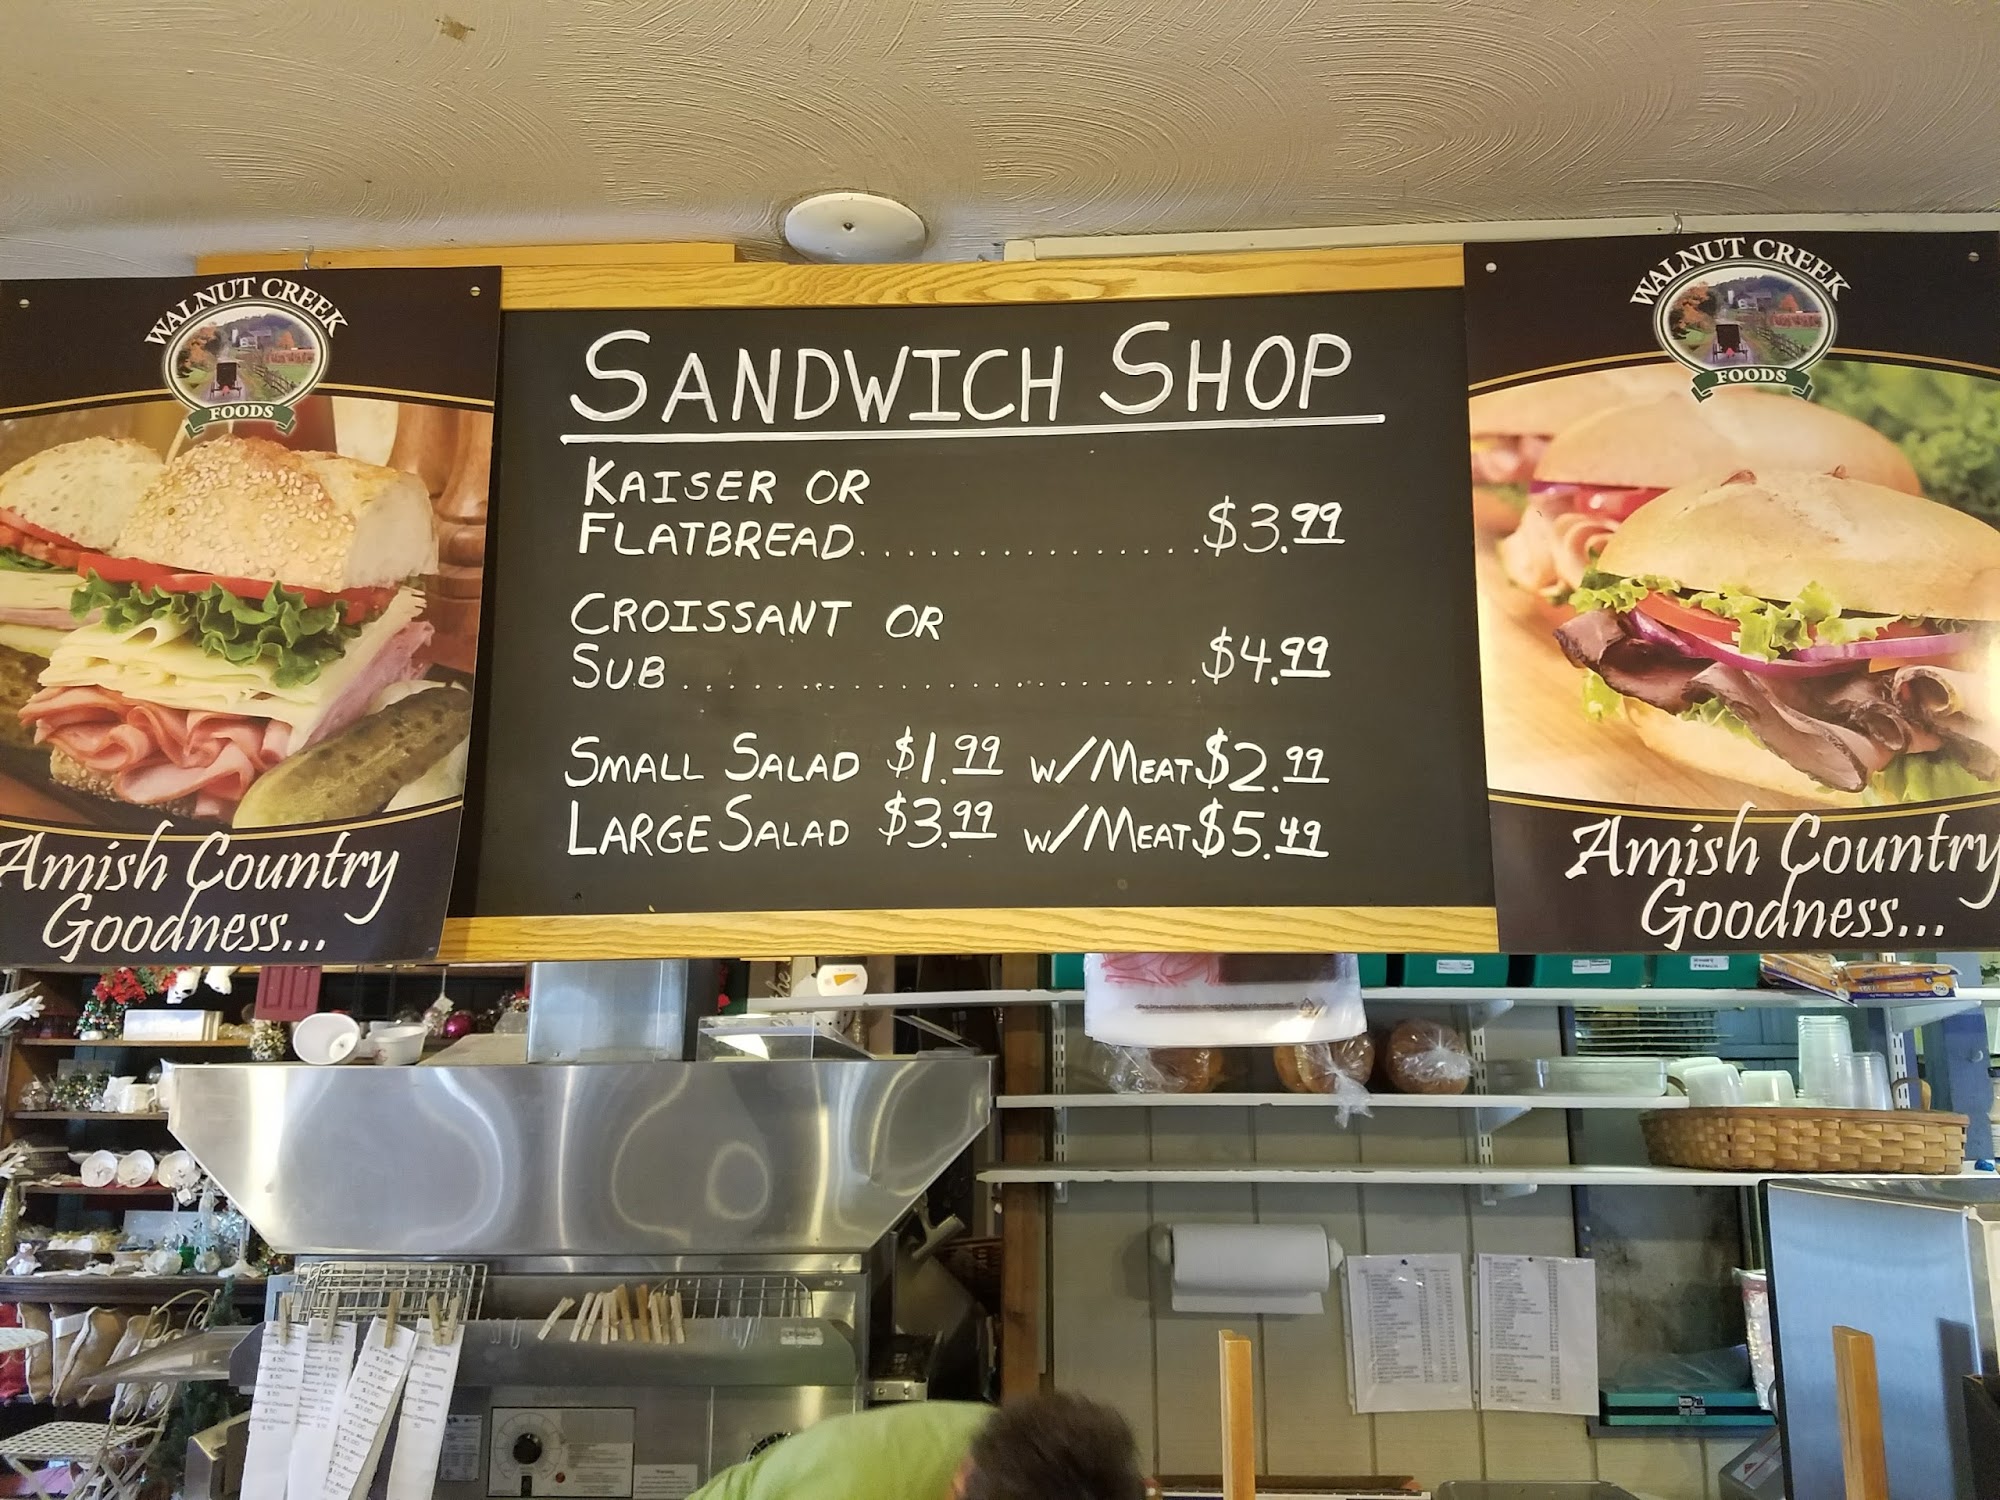 WALNUT CREEK
FOODS
Amish Country
Goodness...
SANDWICH SHOP
KAISER OR
FLATBREAD................$3.99
CROISSANT OR
SUB........................$4.99
SMALL SALAD $1.99 W/MEAT $2.99
LARGE SALAD $3.99 W/MEAT $5.49
WALNUT CREEK
FOODS
Amish Country
Goodness...
the